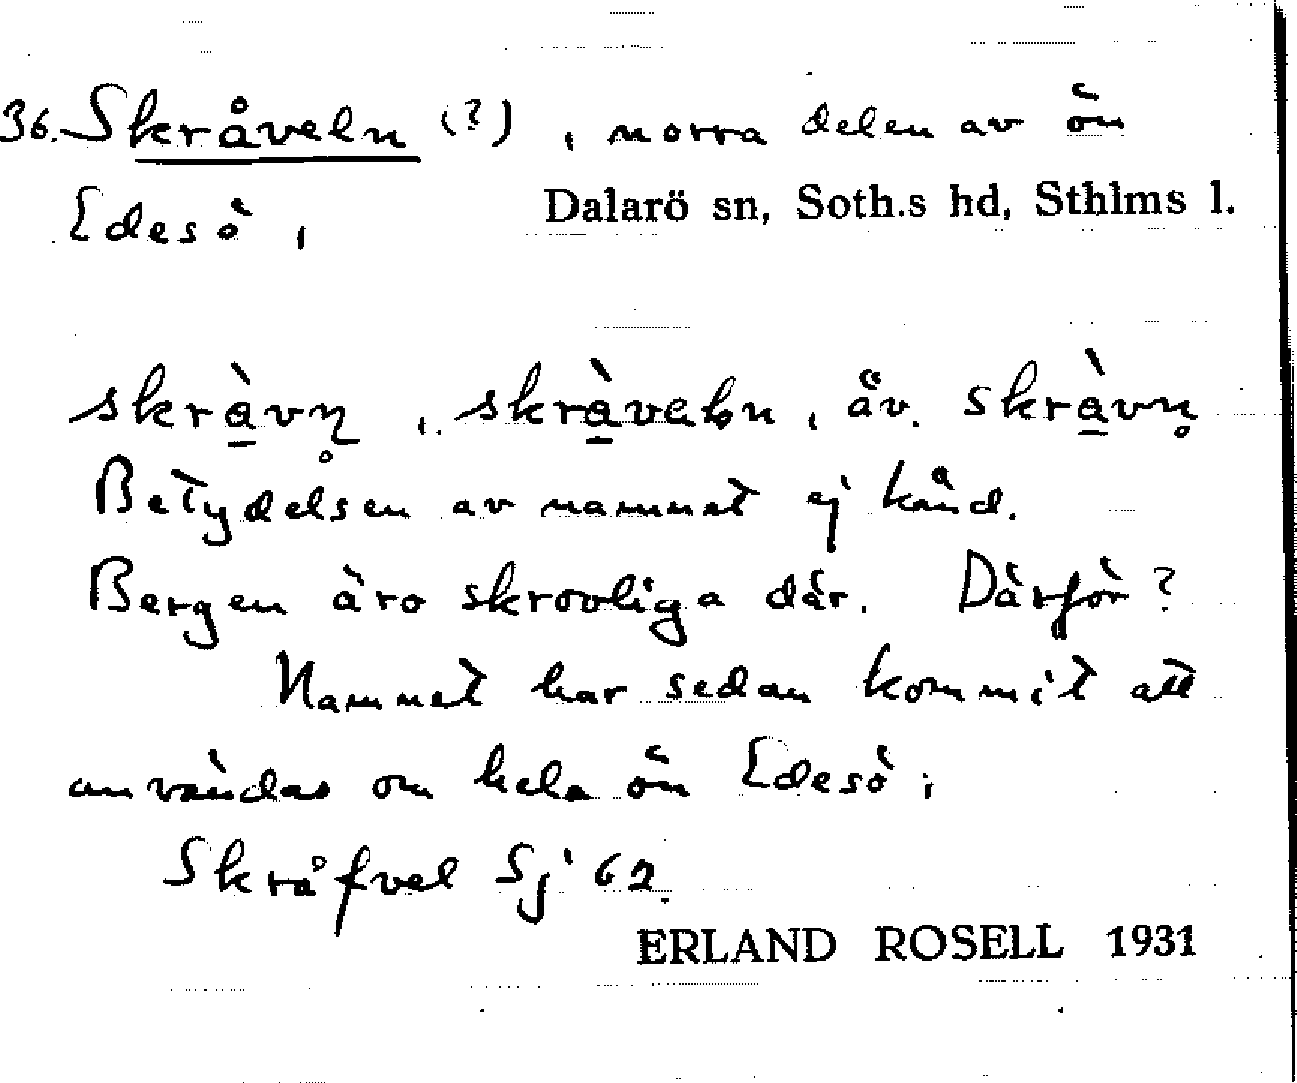 36. Skråveln (?), norra delen av ön
Edesö,
Dalarö sn, Soth.s hd, Sthlms l.
skràvn̥, skràveln, äv. skràvn̥
Betydelsen av namnet ej känd.
Bergen äro skrovliga där. Därför?
Namnet har sedan kommit att
användas om hela ön Edesö;
Skråfvel Sj 62.
ERLAND ROSELL 1931